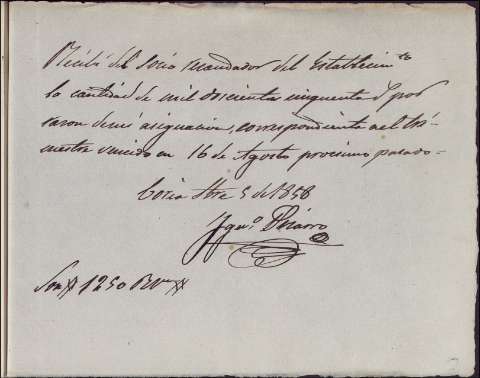 Recibí del Socio recaudador del Establecimto
la cantidad de mil doscienta cinquenta r por
razon de mi asignacion, correspondiente al tri-
mestre vencido en 16 de Agosto procsimo pasado-
Coria 5 de 1858
Ygno Pizarro
Son 1250 Rvn